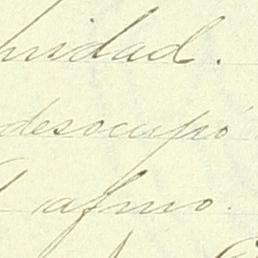 nidad.
desocupó
afmo.